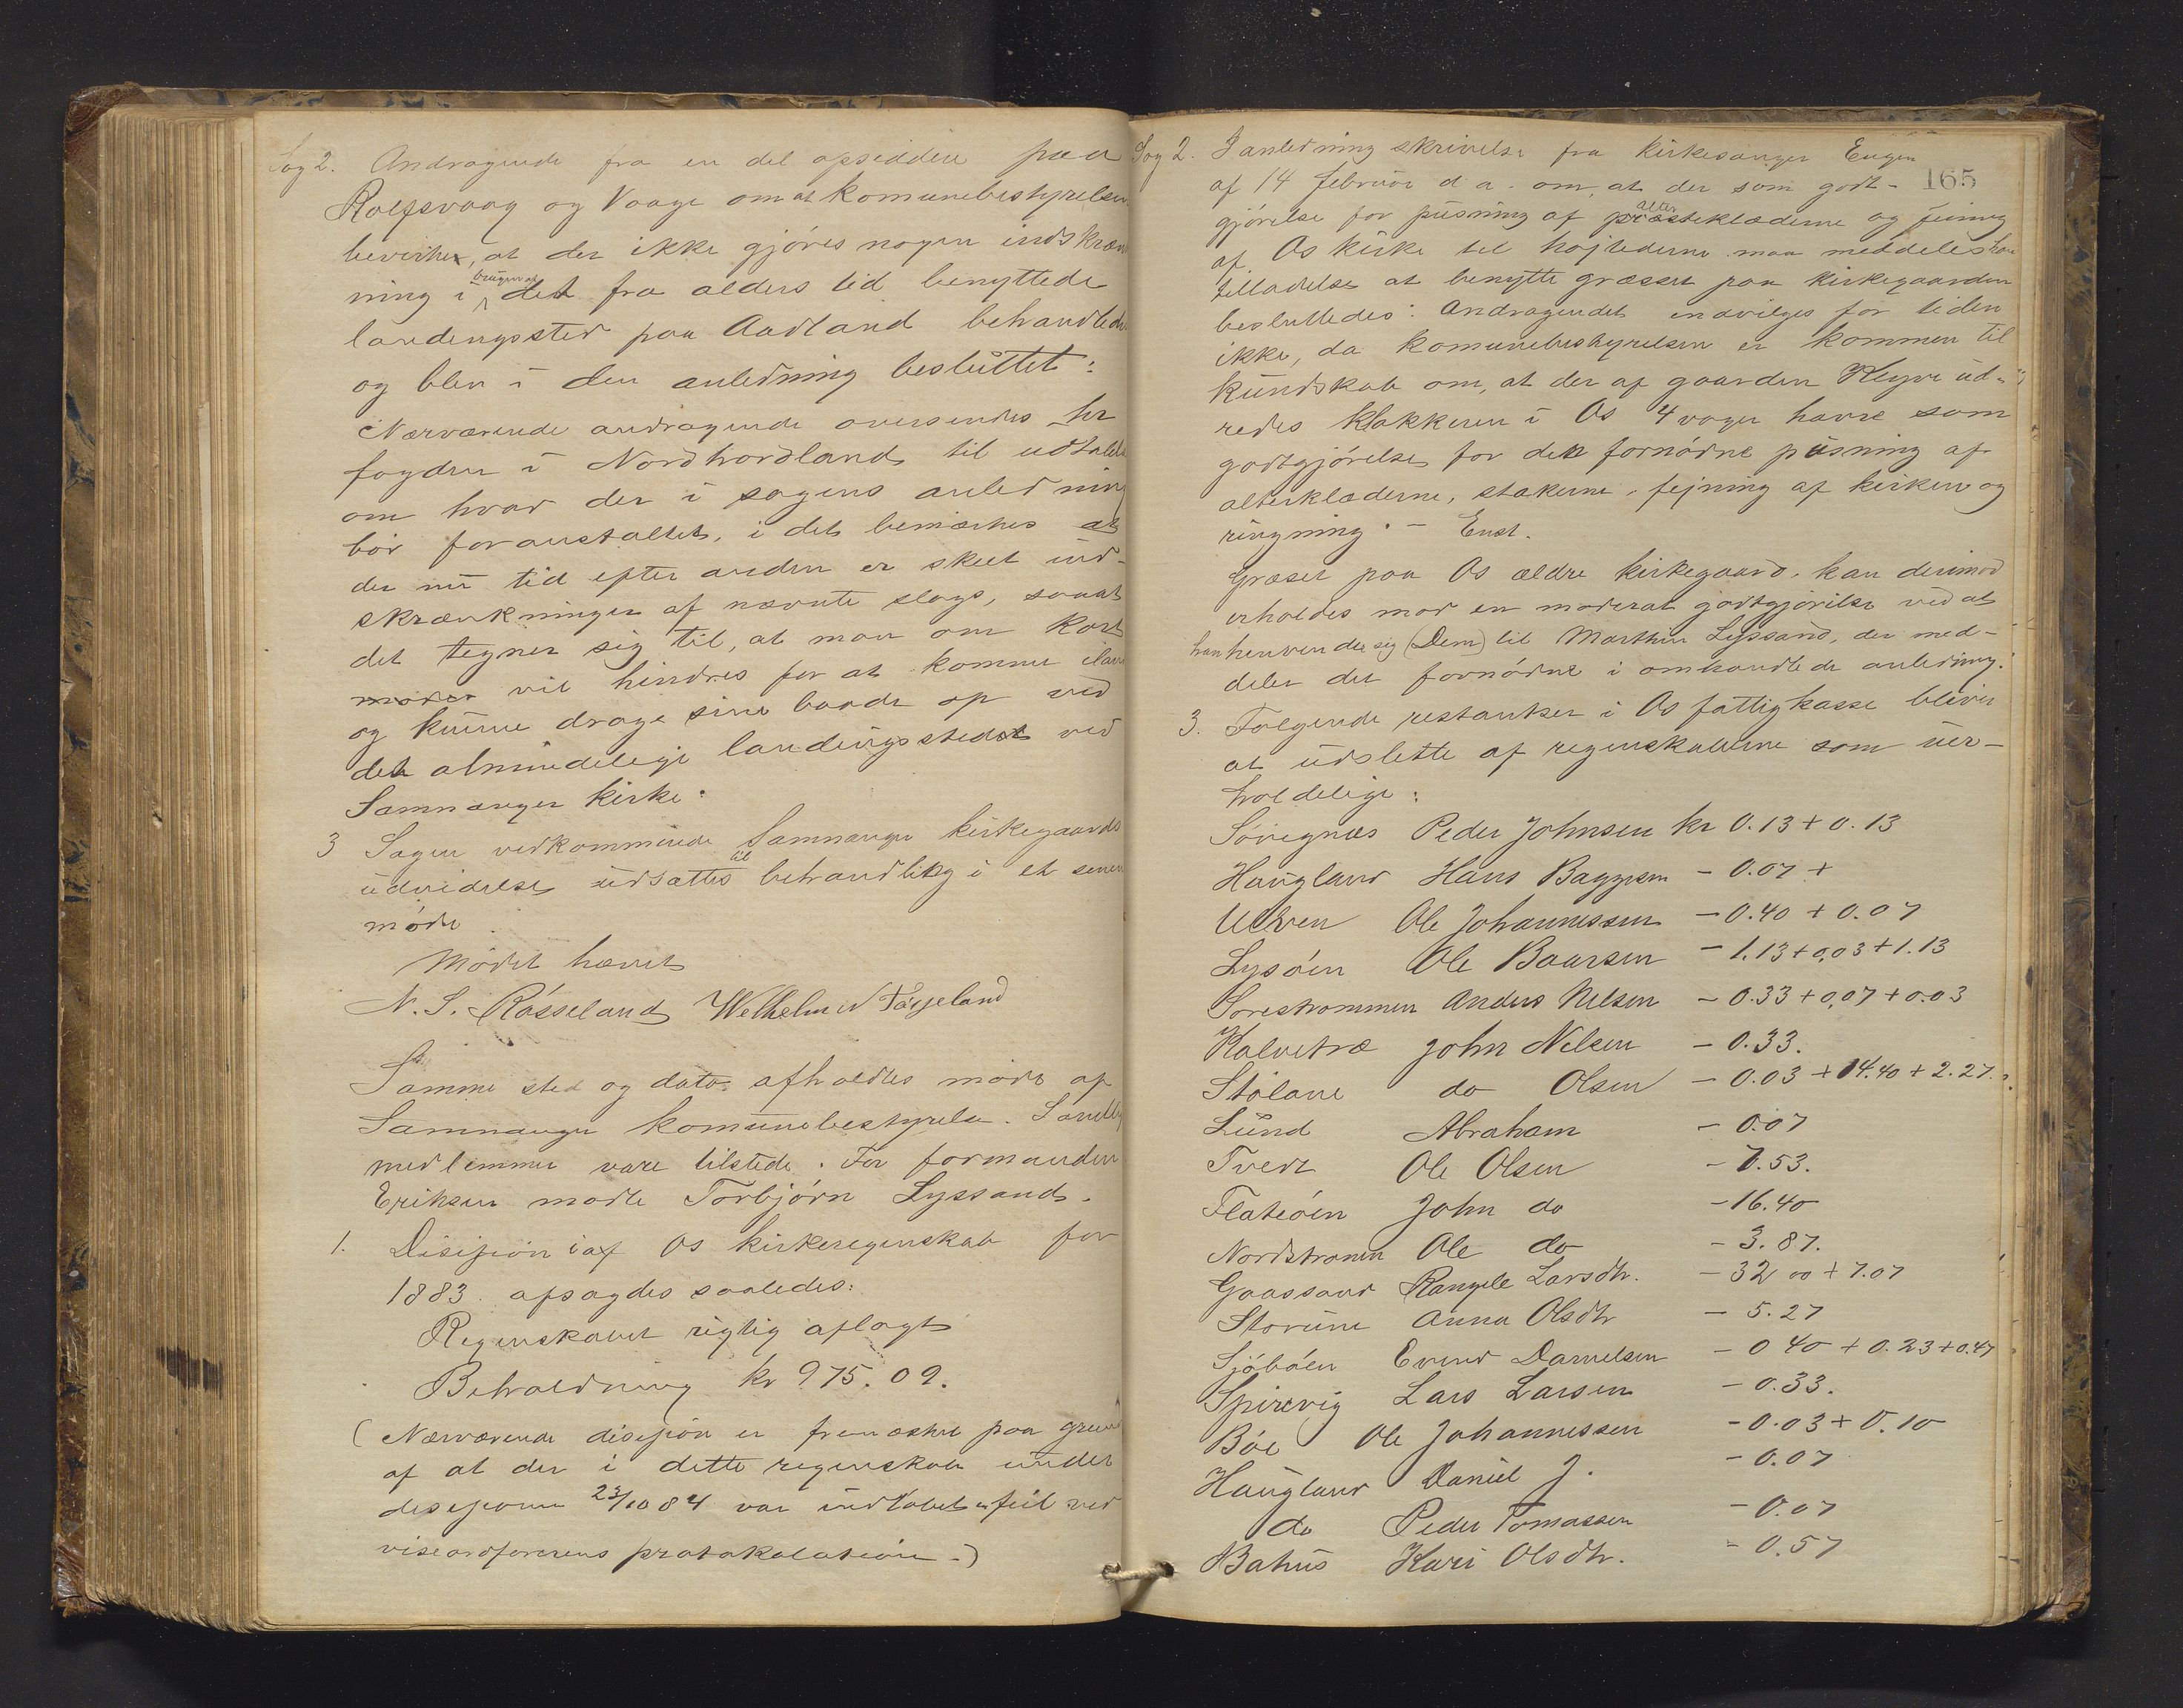 Sag 2. Andragende fra en del opsiddere paa
Rolfsvaag og Vaage om at Komunebestyrelsen
bevirker, at der ikke gjöres nogen indskrænk
ning i brugen af det fra alders tid benyttede
landingssted paa Aadland behandledes
og blev i den anledning besluttet:
Nærværende andragende oversendes hr
fogden i Nordhordland til udtalelse
om hvad der i sagens anledning
bör foranstaltet, i det bemærkes at
der nu tid efter anden er skeet ind-
skrænkninger af nævnte slags, saaat
det tegner sig til, at man om kort
vil hindres for at komme iland
og kunne drage sine baade op ved
det almindelige landingsstedet ved
Samnanger kirke.
3 Sagen vedkommende Samnanger kirkegaards
udvidelse udsættes til behandling i et senere
möde.
Mödet hævet
N. S. Rösseland Wilhelm N Tøsseland
Samme sted og dato afholdtes möde af
Samnanger komunebestyrelse. Samtlige
medlemmer vare tilstede. For formanden
Eriksen mödte Torbjörn Lyssand.
1. Disisjion i af Os kirkeregnskab for
1883 afsagdes saaledes:
Regnskabet rigtig aflagt
Beholdning kr 975.09.
(Nærværende disisjion er fremæsket paa grund
af at der i dette regnskab under
desisjionen 23/10 84 var indlöbet en feil ved
viseordförerens protokolation.)
Sag 2. I anledning skrivelse fra Kirkesanger Engen
165
af 14 februar d. a. om, at der som godt-
gjörelse for pusning af alterklæderne og feining
af Os kirke til höjtiderne maa meddeles ham
tilladelse at benytte græsset paa kirkegaarden
besluttedes: Andragendet indvilges for tiden
ikke, da komunebestyrelsen er kommen til
kundskab om, at der af gaarden Flyve ud-
redes klokkeren i Os 4 voger havre som
godtgjörelse for den fornödne pusning af
alterklæderne, stakerne, fejning af kirken og
ringning. - Enst.
Græset paa Os ældre kirkegaard kan derimod
erholdes mod en moderat godtgjörelse ved at
han henvender sig (Dem) til Marthin Lyssand, der med-
deler det fornödne i omhandlede anledning.
3. Fölgende restantser i Os fattigkasse bliver
at udslette af regnskaberne som uer-
holdelige:
Söregnæs Peder Johnsen kr 0.13 + 0.13
Haugland Hans Baggesen - 0.07 +
Ulven Ole Johannessen - 0.40 + 0.07
Lysöen Ole Baarsen - 1.13 + 0,03 + 1.13
Sörestrommen Anders Nilsen - 0.33 + 0,07 + 0.03
Kalvetræ John Nilsen - 0.33.
Stölane do Olsen - 0.03 + 14.40 + 2.27.
Lund Abraham - 0.07
Tvedt Ole Olsen - 7.53.
Flateöen John do - 16.40
Nordstrømen Ole do - 3.87.
Gaassand Rangele Larsdtr. - 32 00 + 7.07
Storum Anna Olsdtr - 5.27
Sjöböen Evind Danielsen - 0 40 + 0.23 + 0.47
Spirevig Lars Larsen - 0.33.
Böe Ole Johannessen - 0.03 + 0.10
Haugland Daniel J. - 0.07
do Peder Tomassen - 0.07
Bahus Kari Olsdtr. - 0.57